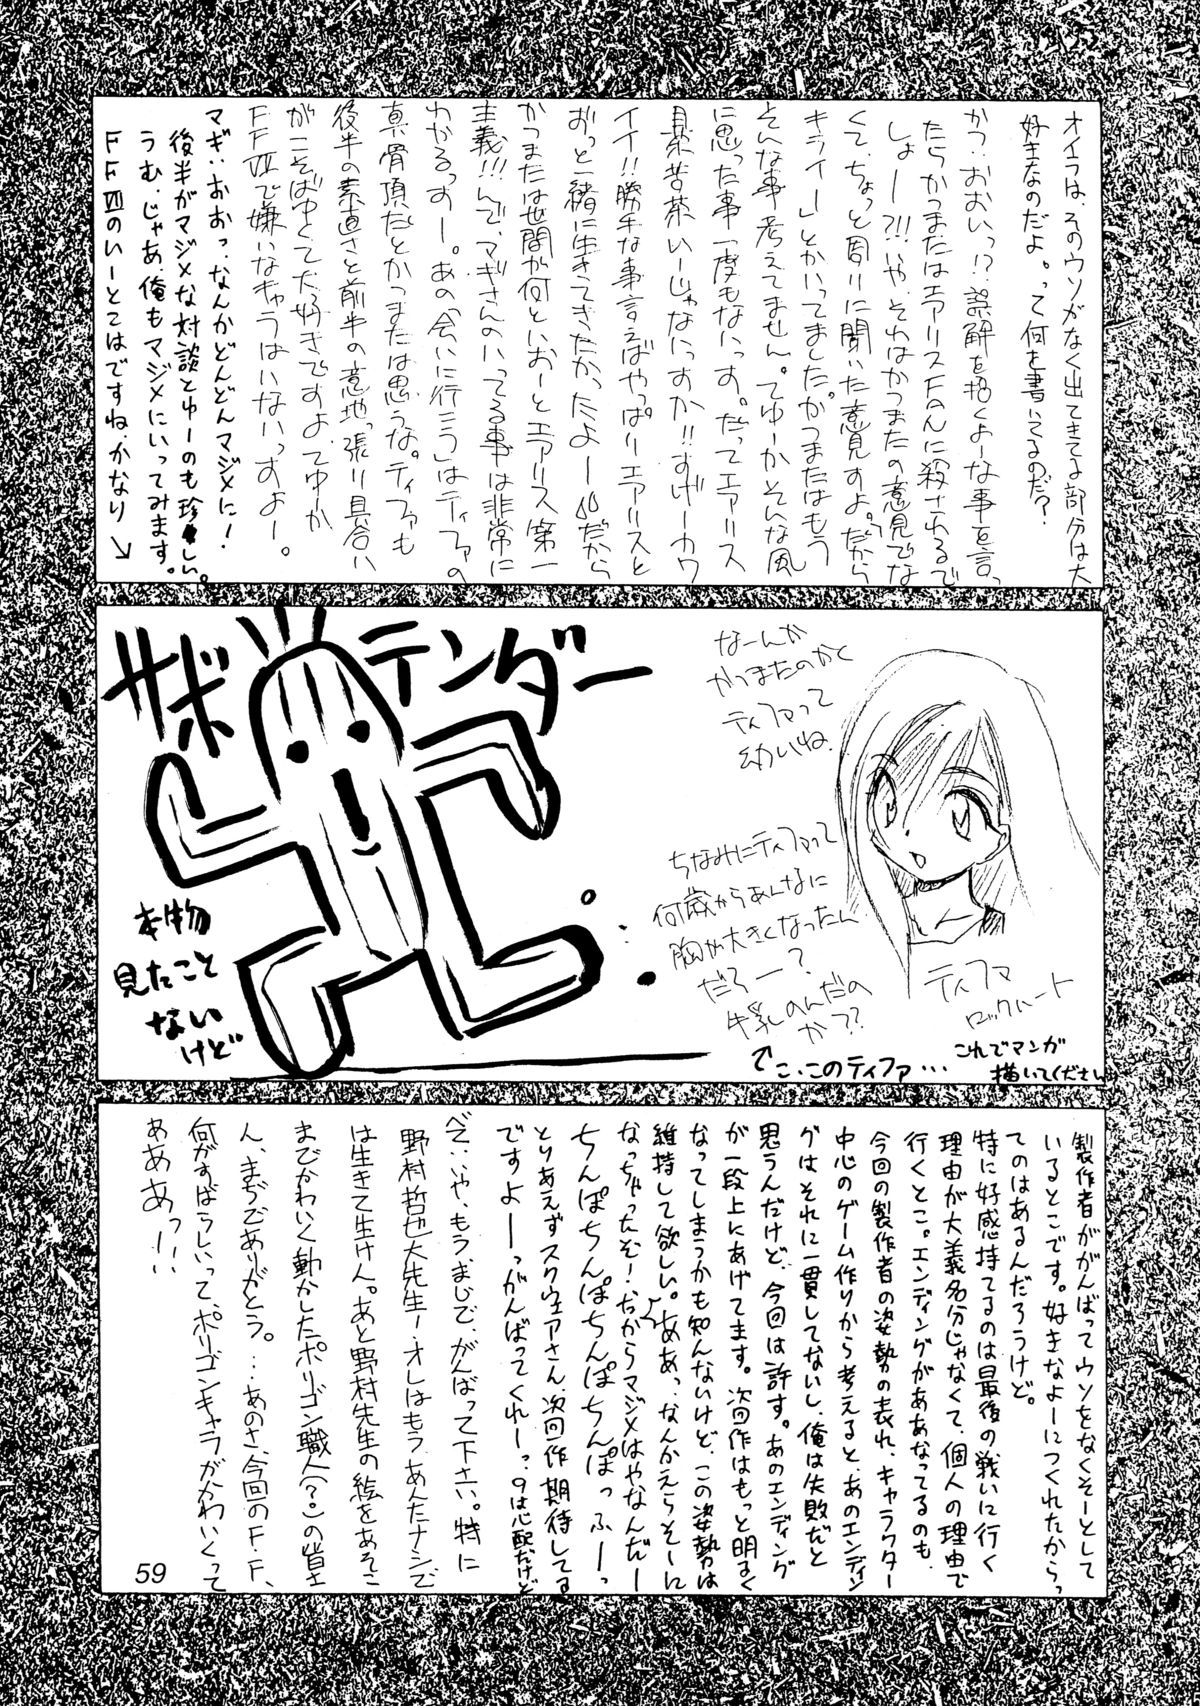 オイラは、そのウソがなく出てきてる部分は大
好きなのだよ。って何を書いてるのだ?
かつ‥おおいっ!?誤解を招くよーな事を言っ
たらかつまたはエアリスFanに殺されるで
しょー?!!いや、それはかつまたの意見でな
くて、ちょっと周りに聞いた意見すよ。「だから
キライー」とかいってましたが。かつまたはもう
そんな事考えてません。てゆーかそんな風
に思った事一度もないっす。だってエアリス
最
イイ!!勝手な事言えばやっぱりエアリスと
おっと一緒に生きてきたかったよーだから
かつまたは世間が何といおーとエアリス第一
主義!!!んで、マギさんのいってる事は非常に
わかるっすー。あの「会いに行こう」はティファの
真骨頂だとかつまたは思うな。ティファも
後半の素直さと前半の意地っ張り具合い
がこそばゆくて大好きですよ。てゆーか
FFⅦで嫌いなキャラはいないっすよー。
マギ‥おおっ、なんかどんどんマジメに!
後半がマジメな対談とゆーのも珍しい。
うむ、じゃあ、俺もマジメにいってみます。
FFⅦのいーとこはですね、かなり↘
サボテンダー
本物
見たこと
ないけど
なーんか
かつまたのかく
ティファって
幼いね
ちなみにティファって
何歳からあんなに
胸が大きくなったん
だろー?
牛乳のんだの
か??
ティファ
ロックハート
こ、このティファ…
これでマンガ
描いてください
製作者ががんばってウソをなくそーとして
いるとこです。好きなよーにつくれたからっ
てのはあるんだろうけど。
特に好感持てるのは最後の戦いに行く
理由が大義名分じゃなくて、個人の理由で
行くとこ。エンディングがああなってるのも、
今回の製作者の姿勢の表れ、キャラクター
中心のゲーム作りから考えると、あのエンディン
グはそれに一貫してないし、俺は失敗だと
思うんだけど、今回は許す。あのエンディング
が一段上にあげてます。次回作はもっと明るく
なってしまうかも知んないけど、この姿勢は
維持して欲しい。ああっ、なんかえらそーに
なっちゃったぞ!だからマジメはやなんだー
ちんぽちんぽちんぽちんぽっふーっ
とりあえずスクウェアさん、次回作期待してる
ですよーーっがんばってくれーっ。9は心配だけど
べ‥いや、もう、まじで、がんばって下さい。特に
野村哲也大先生ー、オレはもう、あんたナシで
は生きて生けん。あと野村先生の絵をあそこ
までかわいく動かしたポリゴン職人(?)の皆さ
ん、まぢでありがとう。…あのさ、今回のF.F、
何がすばらしいって、ポリゴンキャラがかわいくって
ああああっ!!
59